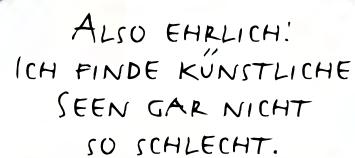 ALSO EHRLICH:
ICH FINDE KÜNSTLICHE
SEEN GAR NICHT
SO SCHLECHT.